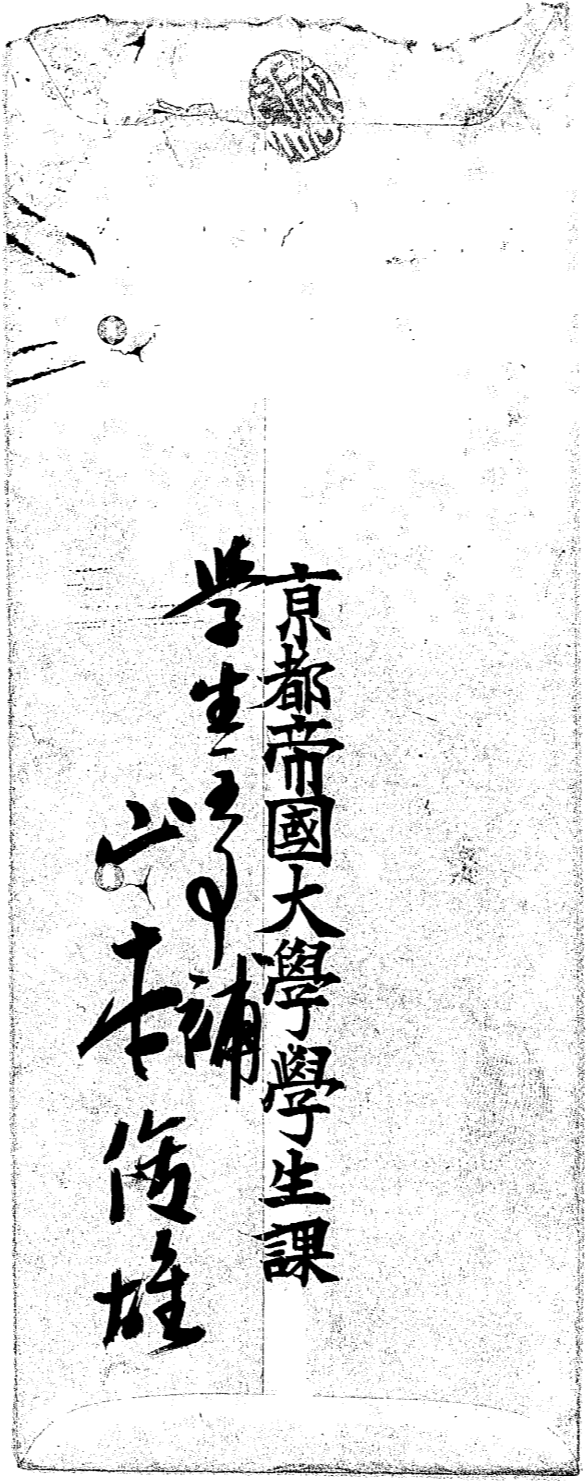 京都帝國大學學生課
学生主事補
山本俊雄